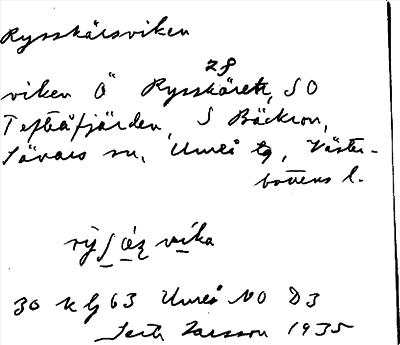 Rysskärsviken
28
viken Ö Rysskäret, SO
Tefteåfjärden, S Bäckron,
Sävars sn, Umeå tg, Väster-
bottens l.
rỳʃάʐ vika
30 kg 63 Umeå NO D3
Larsson 1935